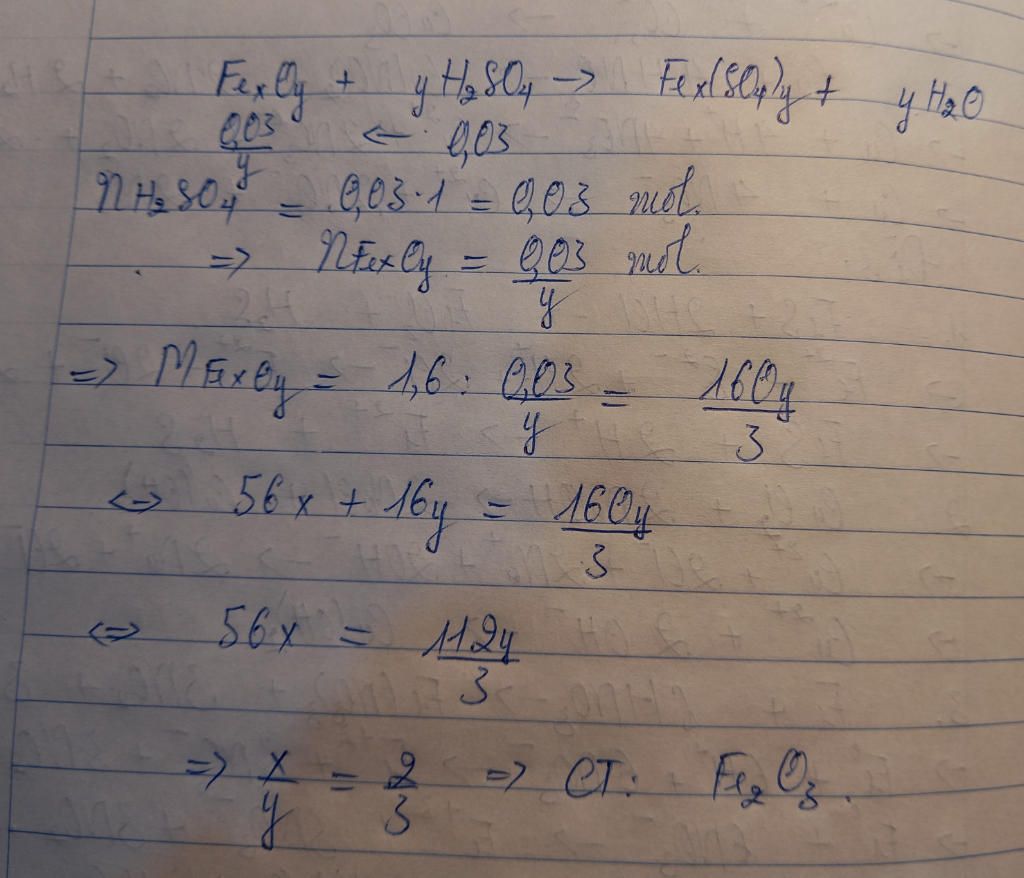 FexOy + yH2SO4 -> Fex(SO4)y + yH2O
0,03/y <- 0,03
nH2SO4 = 0,03.1 = 0,03 mol.
=> nFexOy = 0,03/y mol.
=> MFexOy = 1,6 : 0,03/y = 160y/3
<=> 56x + 16y = 160y/3
<=> 56x = 112y/3
=> x/y = 2/3 => CT: Fe2O3.